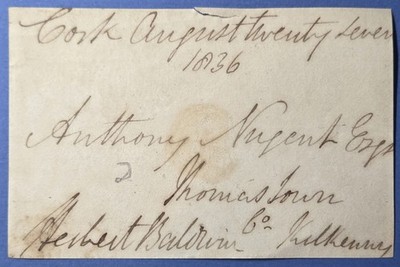 Cork August twenty seven
1836
Anthony Nugent Esqr
Thomastown
Herbert Baldwin Co. Kilkenny